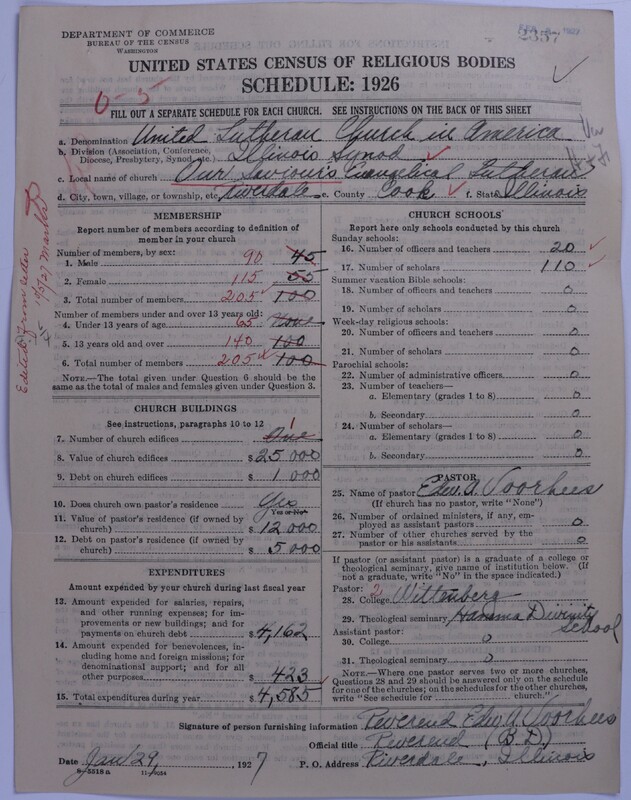 DEPARTMENT OF COMMERCE
BUREAU OF THE CENSUS
WASHINGTON
UNITED STATES CENSUS OF RELIGIOUS BODIES
SCHEDULE: 1926
FILL OUT A SEPARATE SCHEDULE FOR EACH CHURCH. SEE INSTRUCTIONS ON THE BACK OF THIS SHEET
a. Denomination United Lutheran Church in America
b. Division (Association, Conference, Diocese, Presbytery, Synod, etc.) Illinois Synod
c. Local name of church Our Saviour's Evangelical Lutheran
d. City, town, village, or township, etc. Riverdale e. County Cook f. State Illinois
Edited from letter
MEMBERSHIP
Report number of members according to definition of
member in your church
Number of members, by sex:
1. Male 90 45
2. Female 115 55
3. Total number of members 205 100
Number of members under and over 13 years old:
4. Under 13 years of age 65 None
5. 13 years old and over 140 100
6. Total number of members 205 100
NOTE.—The total given under Question 6 should be
same as the total of males and females given under Question 3.
CHURCH BUILDINGS
See instructions, paragraphs 10 to 12
7. Number of church edifices One 1
8. Value of church edifices $ 25 000
9. Debt on church edifices $ 1 000
10. Does church own pastor's residence? Yes
Yes or No
11. Value of pastor's residence (if owned by
church) $ 12 000
12. Debt on pastor's residence (if owned by
church) $ 5 000
EXPENDITURES
Amount expended by your church during last fiscal year
13. Amount expended for salaries, repairs,
and other running expenses; for im-
provements or new buildings; and for
payments on church debt $ 4,162
14. Amount expended for benevolences,
including home and foreign missions; for
denominational support; and for all
other purposes $ 423
15. Total expenditures during year $ 4,585
CHURCH SCHOOLS
Report here only schools conducted by this church
Sunday schools:
16. Number of officers and teachers 20
17. Number of scholars 110
Summer vacation Bible schools:
18. Number of officers and teachers 0
19. Number of scholars 0
Week-day religious schools:
20. Number of officers and teachers 0
21. Number of scholars 0
Parochial schools:
22. Number of administrative officers 0
23. Number of teachers—
a. Elementary (grades 1 to 8) 0
b. Secondary 0
24. Number of scholars—
a. Elementary (grades 1 to 8) 0
b. Secondary 0
PASTOR
25. Name of pastor Edw. A. Voorhees
(If church has no pastor, write "None")
26. Number of ordained ministers, if any, em-
ployed as assistant pastors 0
27. Number of other churches served by the
pastor or his assistants 0
If pastor (or assistant pastor) is a graduate of a college or
theological seminary, give name of institution below. (If
not a graduate, write "No" in the space indicated.)
Pastor: 2
28. College Wittenberg
29. Theological seminary Hamma Divinity School
Assistant pastor:
30. College 0
31. Theological seminary 0
NOTE.—Where one pastor serves two or more churches,
Questions 28 and 29 should be answered only on the schedule
for one of the churches; on the schedules for the other churches,
write "See schedule for church."
Signature of person furnishing information Reverend Edw. A. Voorhees
Official title Reverend (B.D.)
Date Jan 29, 1927 P. O. Address Riverdale, Illinois
8-5518a